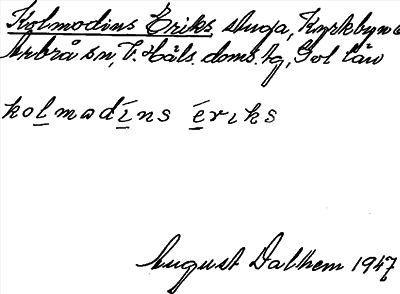 Kolmodins Eriks stuga, Kyrkbyn 6
Arbrå sn, V. Häls. doms.tg, Gvl län
kolmodíns ériks
August Dalhem 1947